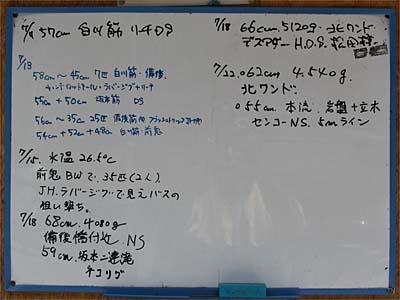 7/9 57cm 白川筋 リーチDS
7/13
58cm〜45cm 7匹 白川筋・備後
55cm + 50cm 坂本筋 DS
56cm〜35cm 25匹 備後筋
54cm + 52cm + 48cm 白川筋・前鬼
7/15. 水温 26.5℃
前鬼BWで、35匹(2人)
JH. ラバージグで見えバスの
狙い撃ち。
7/18 68cm. 4080g
備後橋付近. NS
59cm. 坂本二連滝
ネコリグ
7/18 66cm. 5120g. 北ワンド
デスアダー H.D.S. 松田様
7/22. 062cm 4.540g.
北ワンド.
055cm. 本流. 岩盤+立木
センコーNS. 5mライン